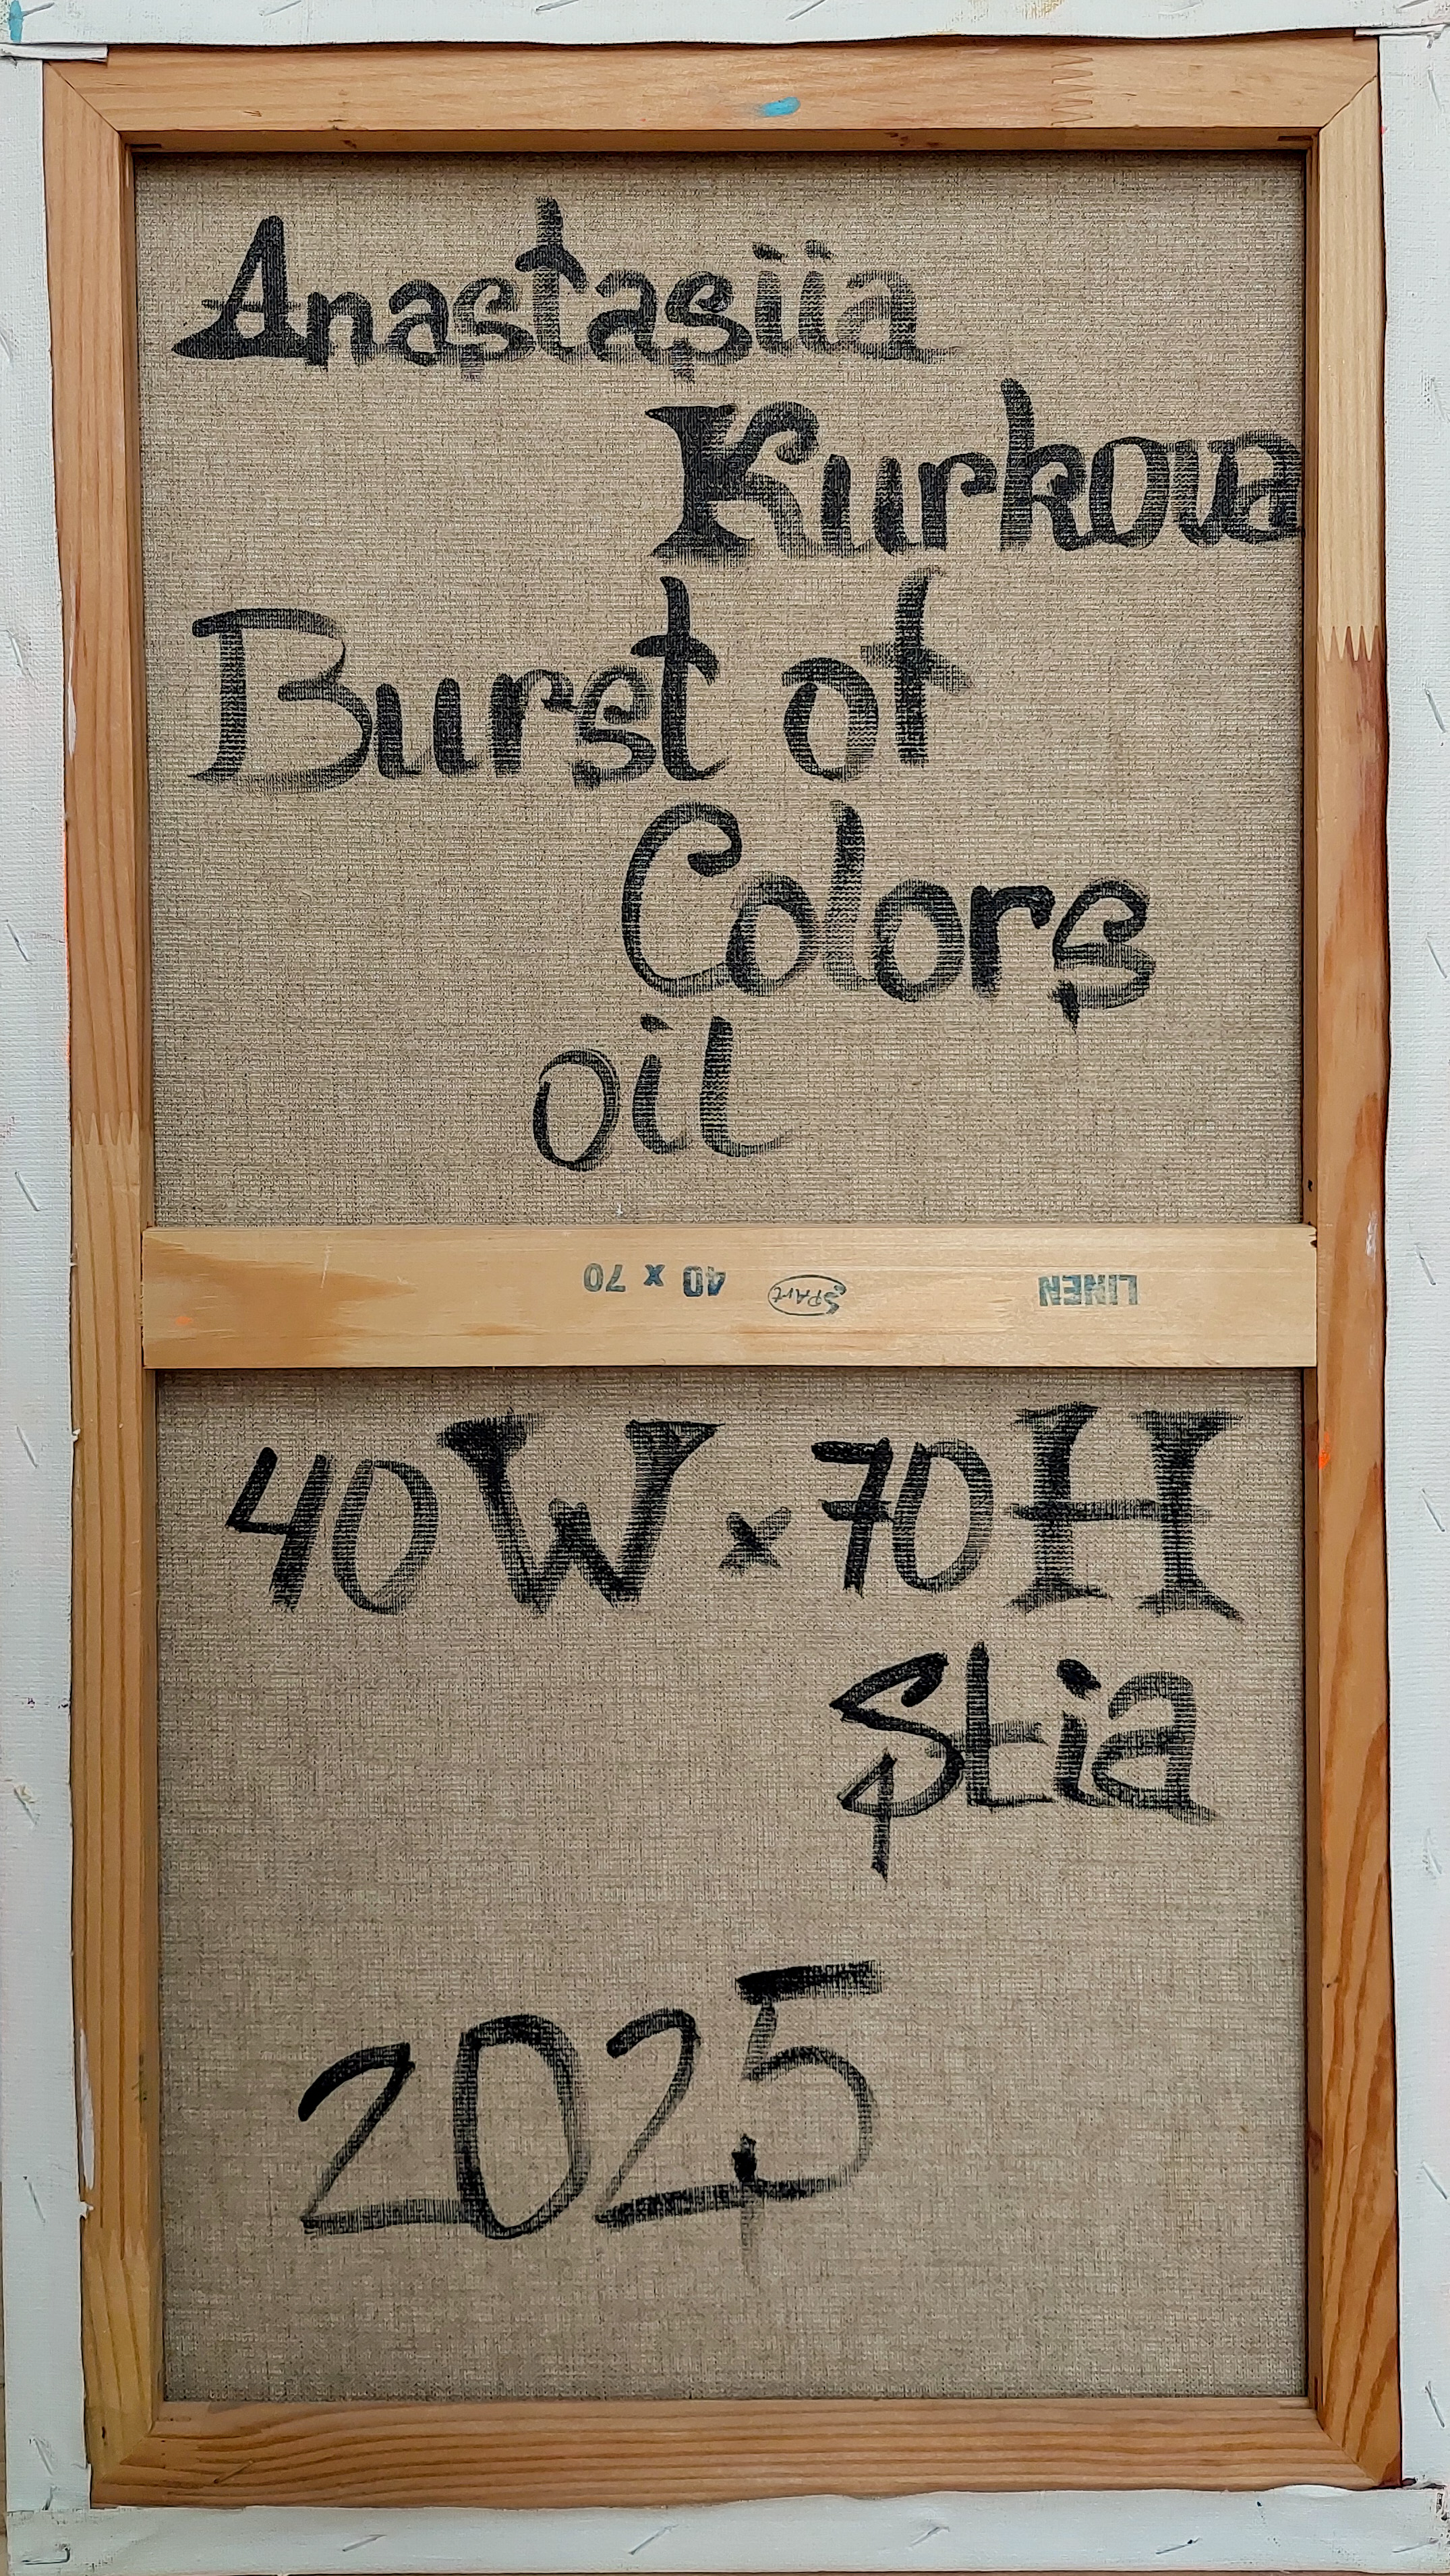 Anastasiia
Kurkova
Burst of
Colors
oil
LINEN SPArt 40 x 70
40W x 70H
Stia
2025